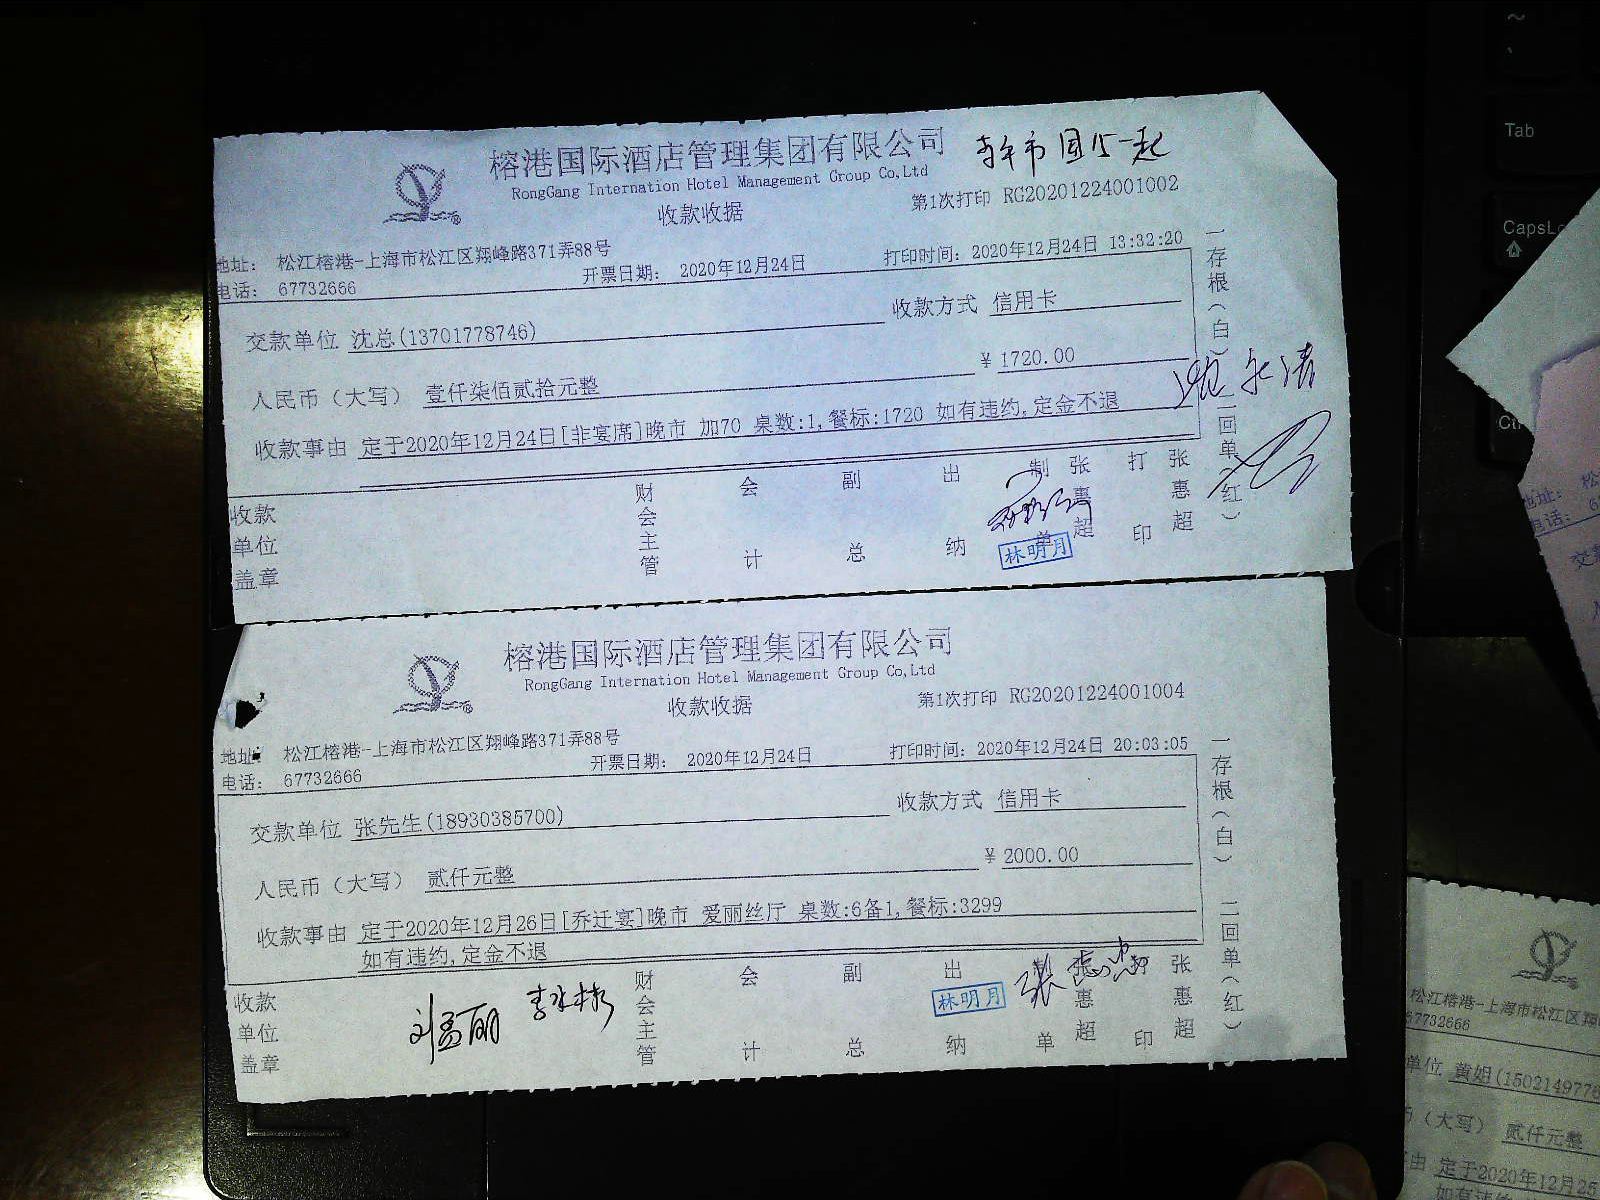 榕港国际酒店管理集团有限公司
RongGang Internation Hotel Management Group Co,Ltd
收款收据
第1次打印 RG20201224001002
地址： 松江榕港-上海市松江区翔峰路371弄88号
电话： 67732666
开票日期： 2020年12月24日
打印时间：2020年12月24日 13:32:20
交款单位 沈总(13701778746)
收款方式 信用卡
人民币（大写） 壹仟柒佰贰拾元整
¥ 1720.00
收款事由 定于2020年12月24日[非宴席]晚市 加70 桌数:1,餐标:1720 如有违约,定金不退
收款单位盖章
财会主管
会计
副总
出纳
制单
张惠超
打印
张惠超
林明月
一存根（白）
二回单（红）
榕港国际酒店管理集团有限公司
RongGang Internation Hotel Management Group Co,Ltd
收款收据
第1次打印 RG20201224001004
地址： 松江榕港-上海市松江区翔峰路371弄88号
电话： 67732666
开票日期： 2020年12月24日
打印时间：2020年12月24日 20:03:05
交款单位 张先生(18930385700)
收款方式 信用卡
人民币（大写） 贰仟元整
¥ 2000.00
收款事由 定于2020年12月26日[乔迁宴]晚市 爱丽丝厅 桌数:6备1,餐标:3299
如有违约,定金不退
收款单位盖章
财会主管
会计
副总
出纳
林明月
单
张惠超
印
张惠超
一存根（白）
二回单（红）
Tab
CapsLo
地址：
电话：
松江榕港-上海市松江区翔
67732666
单位 黄姐(1502149776
（大写） 贰仟元整
由 定于2020年12月25